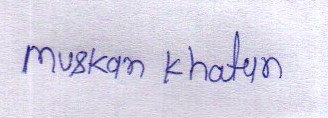 Muskan Khatun